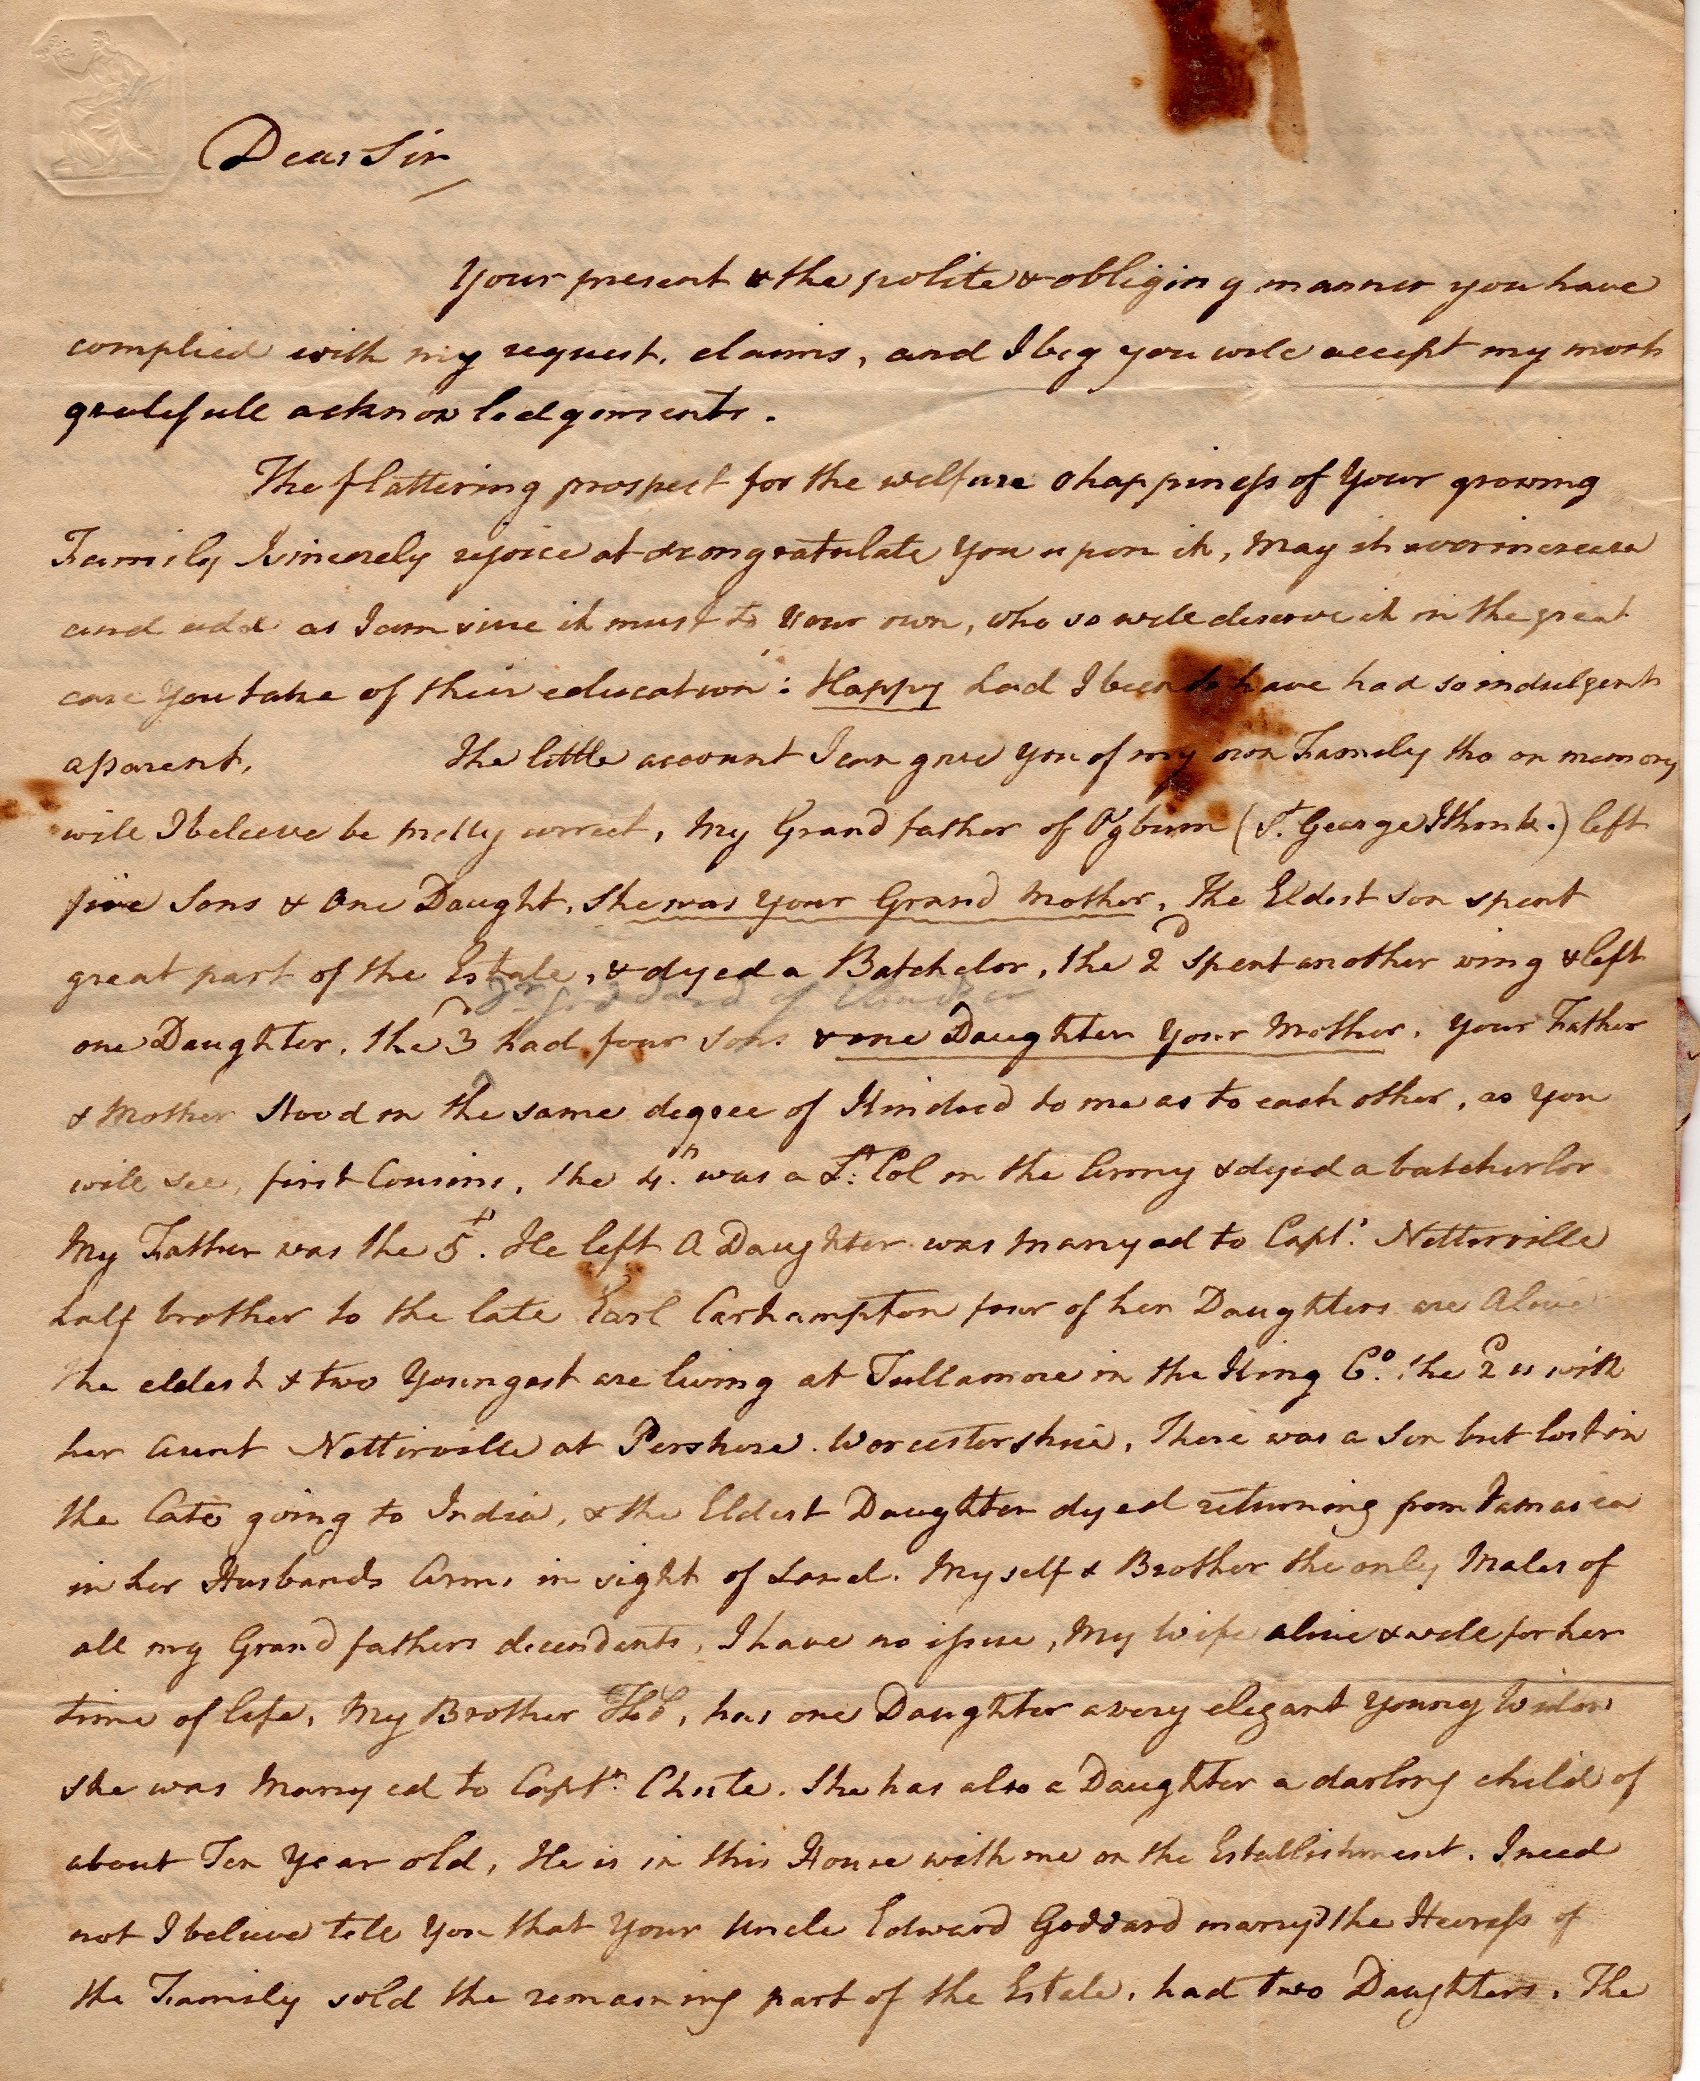 Dear Sir
Your present & the polite & obliging manner you have
complied with my request, claims, and I beg you will accept my most
gratefull acknowledgements.
The flattering prospect for the welfare & happiness of Your growing
Family I sincerely rejoice at & congratulate You upon it, May it ever increase
and add as I am sure it must to Your own, who so well deserve it in the great
care You take of their education: Happy had I been to have had so indulgent
a parent. The little account I can give You of my own Family tho on memory
will I beleeve be pretty correct, My Grand father of Ogburn (St. George I think.) left
five Sons & One Daught, She was Your Grand Mother, The Eldest Son spent
great part of the Estate, & dyed a Batchelor, the 2d spent another wing & left
Goddard of
one Daughter, the 3d had four Sons & one Daughter Your Mother. Your Father
& Mother Stood in the same degree of Kindred to me as to each other, as You
will see, first Cousins, the 4th was a Lt. Col in the Army & dyed a batcherlor
My Father was the 5th. He left A Daughter was marryed to Capt. Netterville
half brother to the late Earl Carhampton four of her Daughters are Alive
the eldest & two Youngest are living at Tullamore in the King Co. the 2d is with
her Aunt Netterville at Pershore. Worcestershire, There was a Son but lost in
the Cato going to India, & the Eldest Daughter dyed returning from Jamaica
in her Husbands Arms in sight of Land. Myself & Brother the only Males of
all my Grand fathers decendants, I have no issue, My Wife alive & well for her
time of life, My Brother has one Daughter a very elegant Young Widow
she was Marryed to Captn. Chute. She has also a Daughter a darling child of
about Ten Year old, He is in this House with me on the Establishment. I need
not I believe tell You that Your Uncle Edward Goddard marryd the Heiress of
the Family sold the remaining part of the Estate, had two Daughters. The